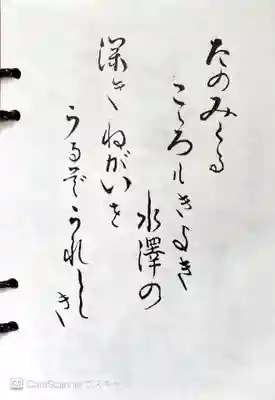 たのみくる
こゝろハきよき
水澤の
深きねがいを
うるぞうれしき
CamScannerでスキャン